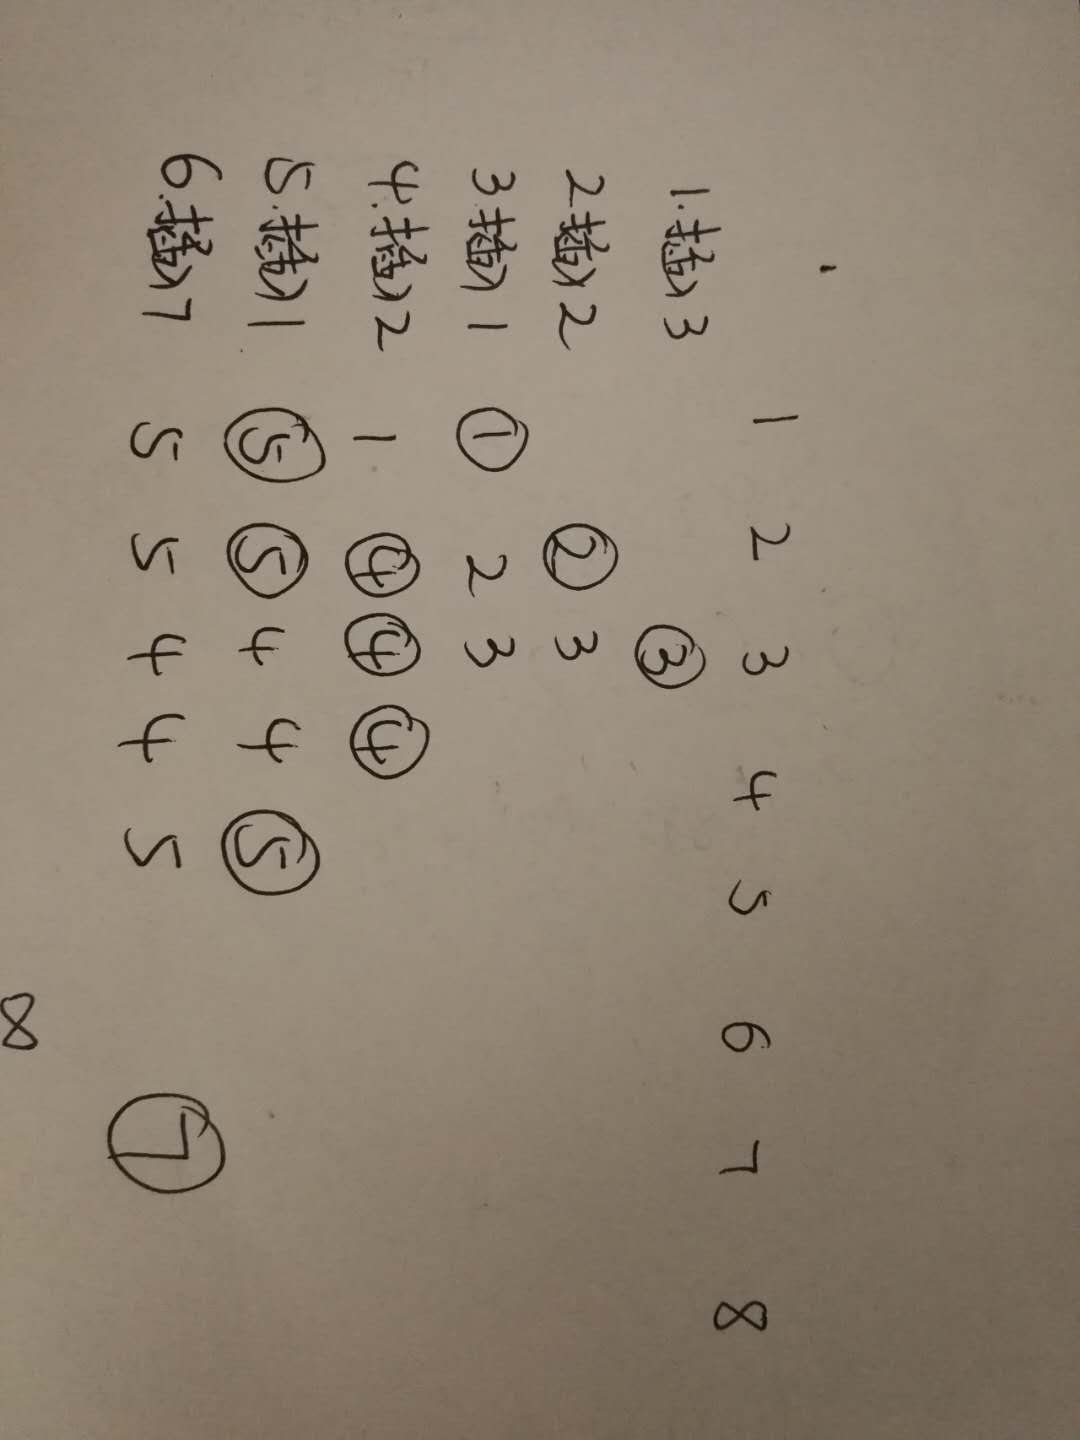 1 2 3 4 5 6 7 8
1.插入3 ③
2插入2 ② 3
3.插入1 ① 2 3
4.插入2 1 ④ ④ ④
5.插入1 ⑤ ⑤ 4 4 ⑤
6.插入7 5 5 4 4 5 ⑦
∞